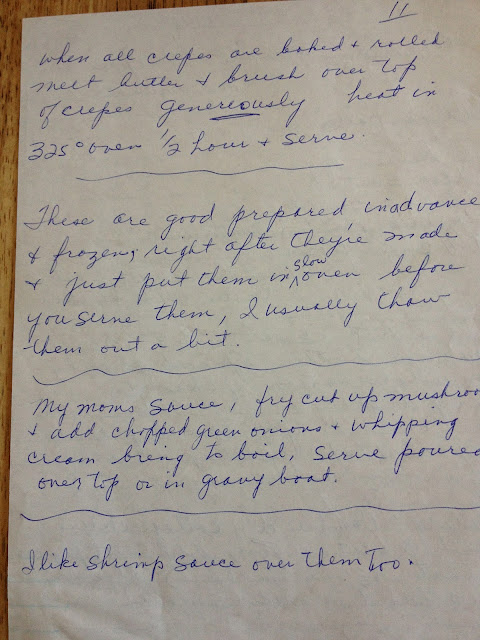 11
when all crepes are baked + rolled
melt butter + brush over top
of crepes genereously heat in
325° oven 1/2 hour + serve.
These are good prepared in advance
+ frozen, right after they're made
+ just put them in slow oven before
you serve them, I usually thaw
them out a bit.
My moms sauce, fry cut up mushroo
+ add chopped green onions + whipping
cream breng to boil, serve poured
over top or in gravy boat.
I like shrimp sauce over them too.